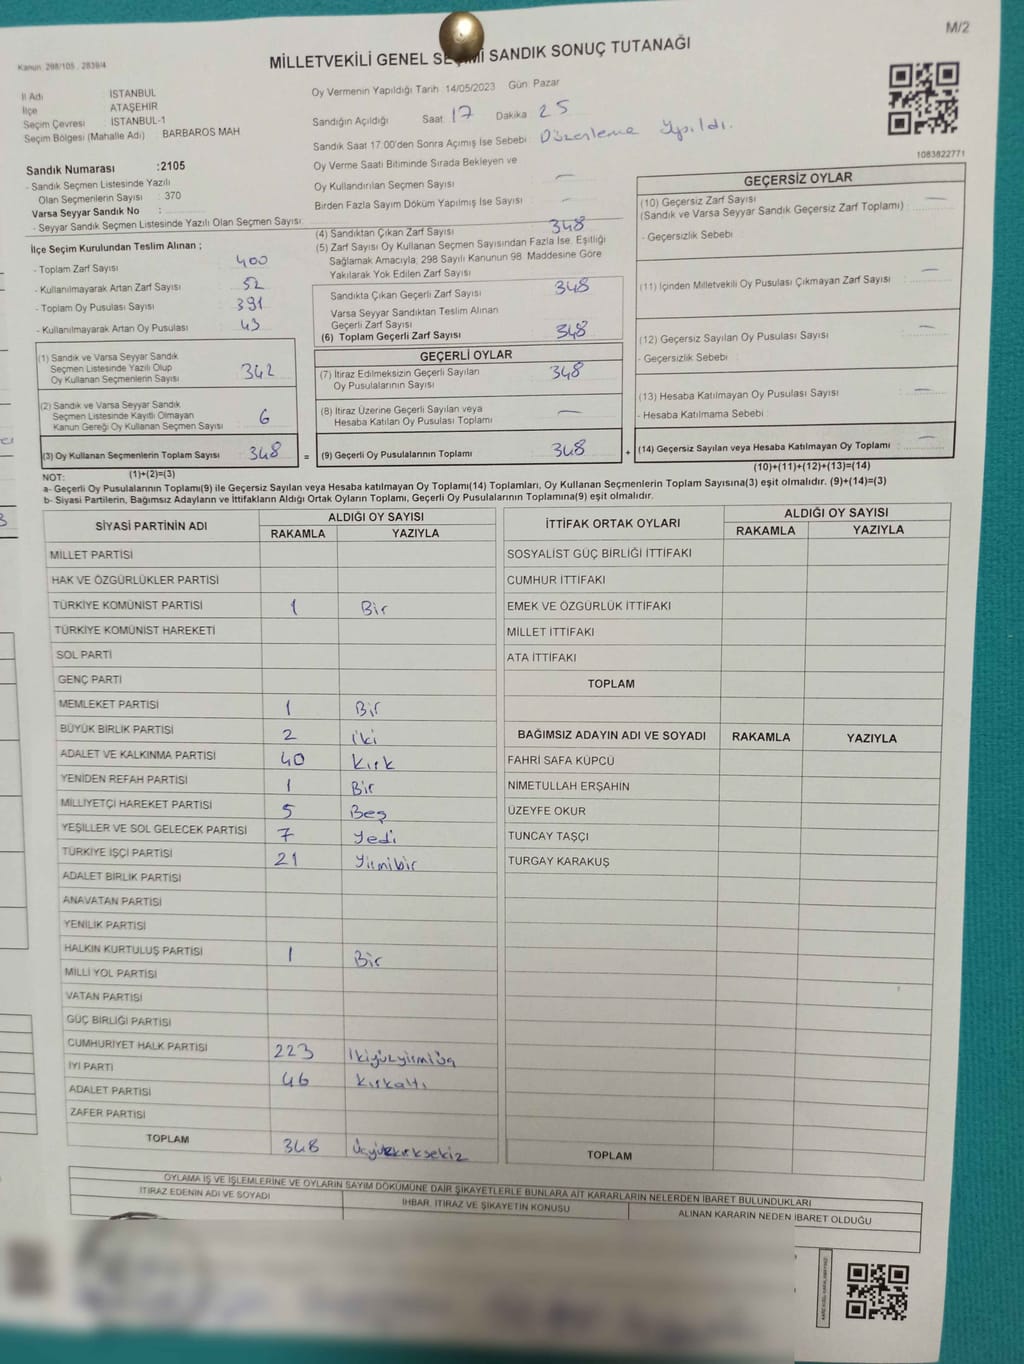 M/2
Kanun: 298/105 , 2839/4
MİLLETVEKİLİ GENEL SEÇİMİ SANDIK SONUÇ TUTANAĞI
İl Adı : İSTANBUL
İlçe : ATAŞEHİR
Seçim Çevresi : İSTANBUL-1
Seçim Bölgesi (Mahalle Adı) : BARBAROS MAH
Sandık Numarası :2105
- Sandık Seçmen Listesinde Yazılı
Olan Seçmenlerin Sayısı : 370
Varsa Seyyar Sandık No :
- Seyyar Sandık Seçmen Listesinde Yazılı Olan Seçmen Sayısı:
Oy Vermenin Yapıldığı Tarih 14/05/2023 Gün: Pazar
Sandığın Açıldığı Saat: 17 Dakika 25
Sandık Saat 17.00'den Sonra Açımış İse Sebebi Düzenleme Yapıldı.
Oy Verme Saati Bitiminde Sırada Bekleyen ve
Oy Kullandırılan Seçmen Sayısı —
Birden Fazla Sayım Döküm Yapılmış İse Sayısı —
1083822771
İlçe Seçim Kurulundan Teslim Alınan ;
- Toplam Zarf Sayısı 400
- Kullanılmayarak Artan Zarf Sayısı 52
- Toplam Oy Pusulası Sayısı 391
- Kullanılmayarak Artan Oy Pusulası 43
(1) Sandık ve Varsa Seyyar Sandık
Seçmen Listesinde Yazılı Olup
Oy Kullanan Seçmenlerin Sayısı 342
(2) Sandık ve Varsa Seyyar Sandık
Seçmen Listesinde Kayıtlı Olmayan
Kanun Gereği Oy Kullanan Seçmen Sayısı 6
(3) Oy Kullanan Seçmenlerin Toplam Sayısı 348
(1)+(2)=(3)
(4) Sandıktan Çıkan Zarf Sayısı 348
(5) Zarf Sayısı Oy Kullanan Seçmen Sayısından Fazla İse, Eşitliği
Sağlamak Amacıyla; 298 Sayılı Kanunun 98. Maddesine Göre
Yakılarak Yok Edilen Zarf Sayısı
Sandıkta Çıkan Geçerli Zarf Sayısı 348
Varsa Seyyar Sandıktan Teslim Alınan
Geçerli Zarf Sayısı
(6) Toplam Geçerli Zarf Sayısı 348
GEÇERLİ OYLAR
(7) İtiraz Edilmeksizin Geçerli Sayılan
Oy Pusulalarının Sayısı 348
(8) İtiraz Üzerine Geçerli Sayılan veya
Hesaba Katılan Oy Pusulası Toplamı —
= (9) Geçerli Oy Pusulalarının Toplamı 348
GEÇERSİZ OYLAR
(10) Geçersiz Zarf Sayısı
(Sandık ve Varsa Seyyar Sandık Geçersiz Zarf Toplamı) : —
- Geçersizlik Sebebi
(11) İçinden Milletvekili Oy Pusulası Çıkmayan Zarf Sayısı —
(12) Geçersiz Sayılan Oy Pusulası Sayısı —
- Geçersizlik Sebebi :
(13) Hesaba Katılmayan Oy Pusulası Sayısı —
- Hesaba Katılmama Sebebi :
+ (14) Geçersiz Sayılan veya Hesaba Katılmayan Oy Toplamı —
(10)+(11)+(12)+(13)=(14)
NOT:
a- Geçerli Oy Pusulalarının Toplamı(9) ile Geçersiz Sayılan veya Hesaba katılmayan Oy Toplamı(14) Toplamları, Oy Kullanan Seçmenlerin Toplam Sayısına(3) eşit olmalıdır. (9)+(14)=(3)
b- Siyasi Partilerin, Bağımsız Adayların ve İttifakların Aldığı Ortak Oyların Toplamı, Geçerli Oy Pusulalarının Toplamına(9) eşit olmalıdır.
SİYASİ PARTİNİN ADI ALDIĞI OY SAYISI
RAKAMLA YAZIYLA
MİLLET PARTİSİ
HAK VE ÖZGÜRLÜKLER PARTİSİ
TÜRKİYE KOMÜNİST PARTİSİ 1 Bir
TÜRKİYE KOMÜNİST HAREKETİ
SOL PARTİ
GENÇ PARTİ
MEMLEKET PARTİSİ 1 Bir
BÜYÜK BİRLİK PARTİSİ 2 İki
ADALET VE KALKINMA PARTİSİ 40 Kırk
YENİDEN REFAH PARTİSİ 1 Bir
MİLLİYETÇİ HAREKET PARTİSİ 5 Beş
YEŞİLLER VE SOL GELECEK PARTİSİ 7 Yedi
TÜRKİYE İŞÇİ PARTİSİ 21 Yirmibir
ADALET BİRLİK PARTİSİ
ANAVATAN PARTİSİ
YENİLİK PARTİSİ
HALKIN KURTULUŞ PARTİSİ 1 Bir
MİLLİ YOL PARTİSİ
VATAN PARTİSİ
GÜÇ BİRLİĞİ PARTİSİ
CUMHURİYET HALK PARTİSİ 223 İkiyüzyirmiüç
İYİ PARTİ 46 Kırkaltı
ADALET PARTİSİ
ZAFER PARTİSİ
TOPLAM 348 Üçyüzkırksekiz
İTTİFAK ORTAK OYLARI ALDIĞI OY SAYISI
RAKAMLA YAZIYLA
SOSYALİST GÜÇ BİRLİĞİ İTTİFAKI
CUMHUR İTTİFAKI
EMEK VE ÖZGÜRLÜK İTTİFAKI
MİLLET İTTİFAKI
ATA İTTİFAKI
TOPLAM
BAĞIMSIZ ADAYIN ADI VE SOYADI RAKAMLA YAZIYLA
FAHRİ SAFA KÜPCÜ
NİMETULLAH ERŞAHİN
ÜZEYFE OKUR
TUNCAY TAŞÇI
TURGAY KARAKUŞ
TOPLAM
OYLAMA İŞ VE İŞLEMLERİNE VE OYLARIN SAYIM DÖKÜMÜNE DAİR ŞİKAYETLERLE BUNLARA AİT KARARLARIN NELERDEN İBARET BULUNDUKLARI
İTİRAZ EDENİN ADI VE SOYADI İHBAR, İTİRAZ VE ŞİKAYETİN KONUSU ALINAN KARARIN NEDEN İBARET OLDUĞU